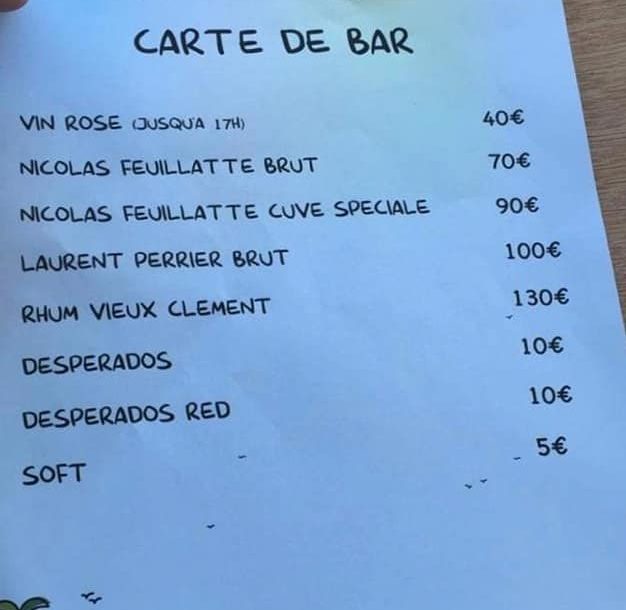 CARTE DE BAR
VIN ROSE (JUSQU'A 17H) 40€
NICOLAS FEUILLATTE BRUT 70€
NICOLAS FEUILLATTE CUVE SPECIALE 90€
LAURENT PERRIER BRUT 100€
RHUM VIEUX CLEMENT 130€
DESPERADOS 10€
DESPERADOS RED 10€
SOFT 5€